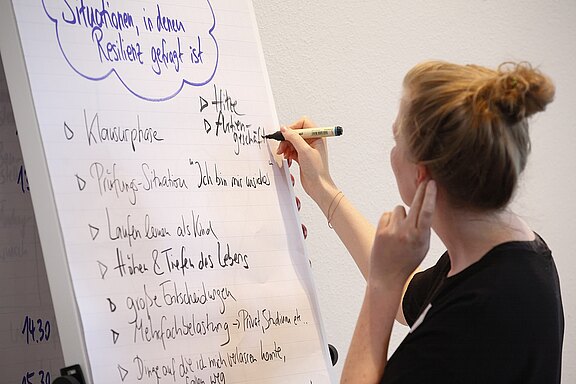 Situationen, in denen
Resilienz gefragt ist
▷ Hitze
▷
geschäft
▷ Klausurphase
▷ Prüfungs-Situation "Ich bin mir unsicher"
▷ Laufen lernen als Kind
▷ Höhen & Tiefen des Lebens
▷ große Entscheidungen
▷ Mehrfachbelastung → Privat, Studium etc..
▷ Dinge auf die ich mich verlassen konnte,
fallen weg
14.30
15.30